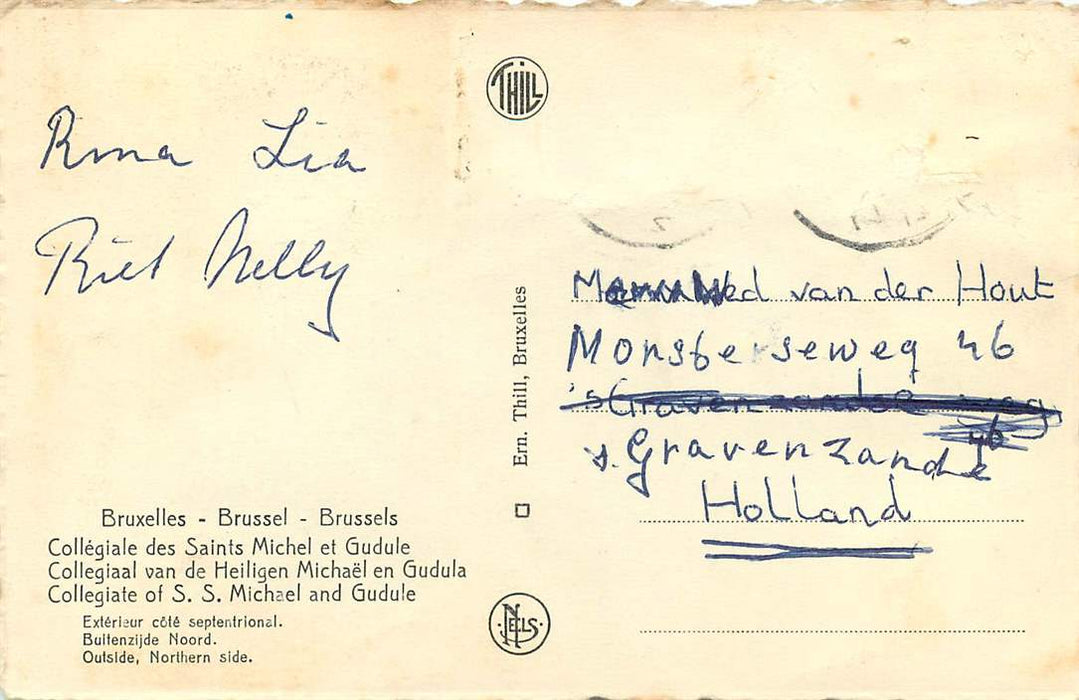 Rma Lia
Riet Nelly
Bruxelles - Brussel - Brussels
Collégiale des Saints Michel et Gudule
Collegiaal van de Heiligen Michaël en Gudula
Collegiate of S. S. Michael and Gudule
Extérieur côté septentrional.
Buitenzijde Noord.
Outside, Northern side.
THILL
Ern. Thill, Bruxelles
NELS
van der Hout
Monsterseweg 46
's Gravenzandse weg
46
s. Gravenzande
Holland